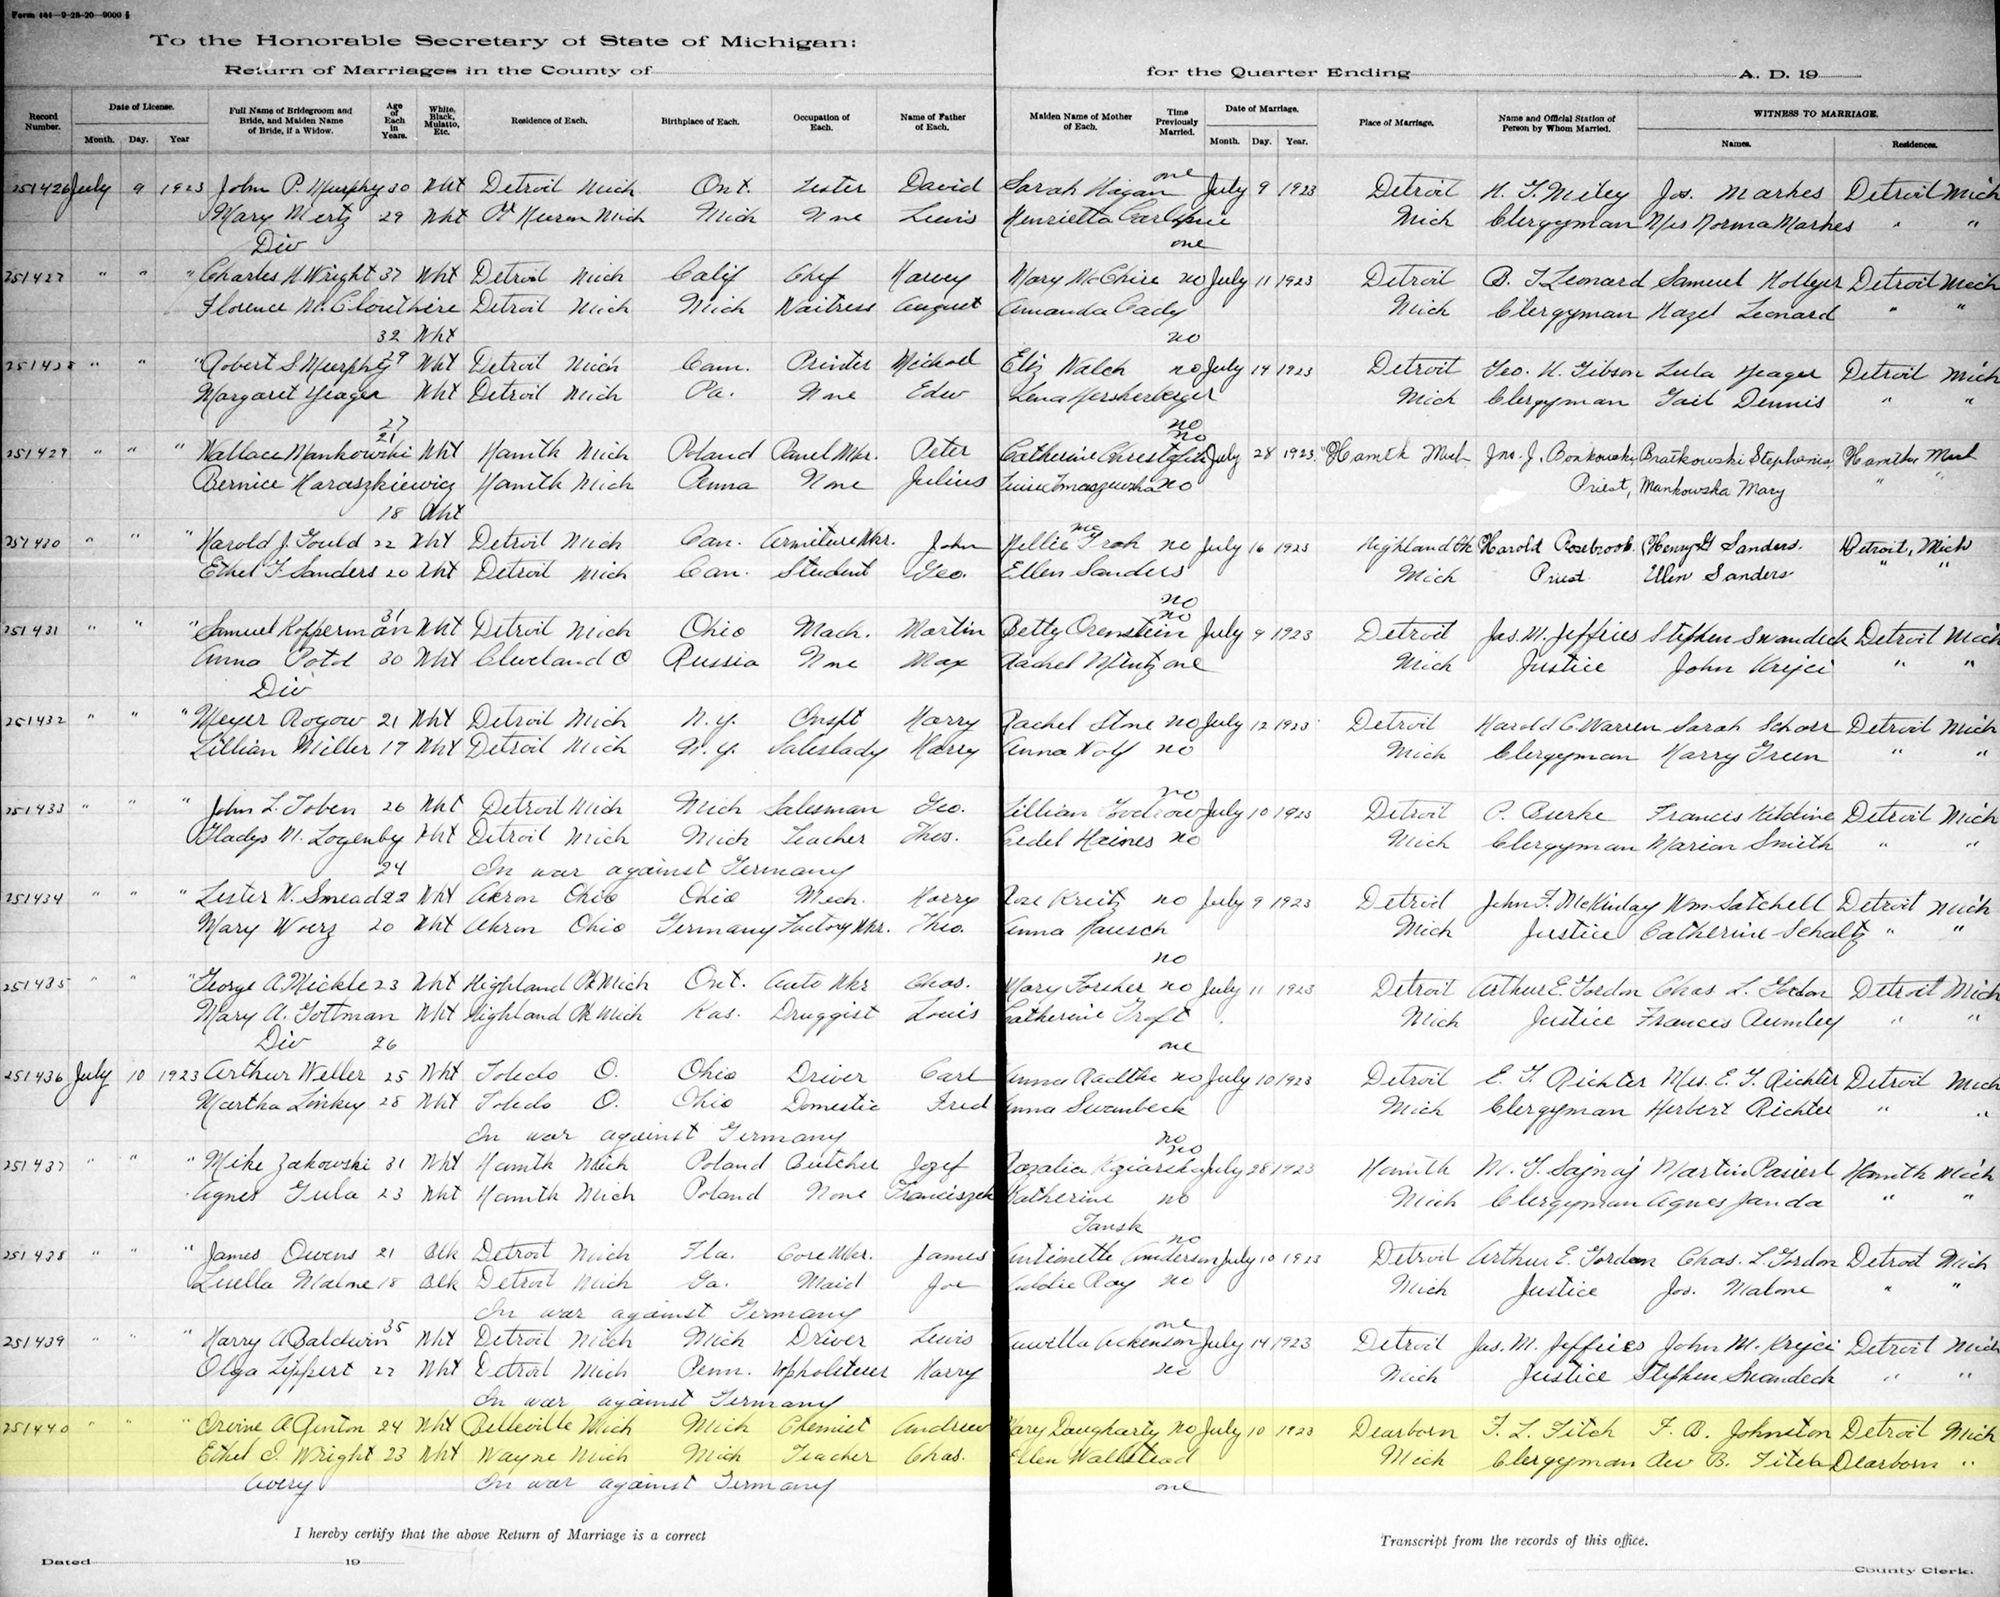 Form 161—9-28-20—9000
To the Honorable Secretary of State of Michigan:
Return of Marriages in the County of
for the Quarter Ending A. D. 19
Record Number. Date of License. Month. Day. Year Full Name of Bridegroom and Bride, and Maiden Name of Bride, if a Widow. Age of Each in Years. White, Black, Mulatto, Etc. Residence of Each. Birthplace of Each. Occupation of Each. Name of Father of Each. Maiden Name of Mother of Each. Time Previously Married. Date of Marriage. Month. Day. Year. Place of Marriage. Name and Official Station of Person by Whom Married. WITNESS TO MARRIAGE. Names. Residences.
251426 July 9 1923 John P. Murphy 30 Wht Detroit Mich Ont. David Sarah Hagan one July 9 1923 Detroit Jos. Markes Detroit Mich
Mary Mertz 29 Wht Pt Huron Mich Mich None Lewis Henrietta Mich Clergyman Mrs Norma Markes " "
Div one
251427 " " " Charles H. Wright 37 Wht Detroit Mich Calif Chef Harvey Mary McChire no July 11 1923 Detroit B. F. Leonard Samuel Hollyer Detroit Mich
Florence M. Clouthire Detroit Mich Mich Waitress August Amanda Cady Mich Clergyman Hazel Leonard " "
32 Wht no
251428 " " " Robert S Murphy 29 Wht Detroit Mich Can. Printer Michael Eliz Walch no July 14 1923 Detroit Geo. H. Gibson Lula Yeager Detroit Mich
Margaret Yeager Wht Detroit Mich Pa. None Edw Lena Hershberger Mich Clergyman Gail Dennis " "
27 no
251429 " " " Wallace Mankowski 21 Wht Hamtk Mich Poland Panel Wkr. Peter Catherine no July 28 1923 Hamtk Mich Jno. J. Bratkowski Stephanie Hamtk Mich
Bernice Karaszkiewicz Hamtk Mich None Julius no Priest, Mankowska Mary " "
18 Wht
251430 " " " Harold J. Gould 22 Wht Detroit Mich Can. Armiture Wkr. John Nellie no July 16 1923 Highland Pk Harold Rosebrook Henry G Sanders. Detroit, Mich
Ethel F Sanders 20 Wht Detroit Mich Can. Student Geo. Ellen Sanders Mich Priest Ellen Sanders " "
no
251431 " " " Samuel Kopperman 31 Wht Detroit Mich Ohio Mach. Martin Betty Orenstein no July 9 1923 Detroit Jas. M. Jeffries Stephen Swandeck Detroit Mich
Anna 30 Wht Cleveland O Russia None Max Rachel Mintz one Mich Justice John Krejci " "
Div
251432 " " " Meyer Rogow 21 Wht Detroit Mich N.Y. Inspt Harry Rachel Stne no July 12 1923 Detroit Harold C. Warren Sarah Schorr Detroit Mich
Lillian Miller 17 Wht Detroit Mich N.Y. Saleslady Harry Anna Wolf no Mich Clergyman Harry Green " "
251433 " " " John L. Toben 26 Wht Detroit Mich Mich Salesman Geo. Lillian no July 10 1923 Detroit P. Burke Francis Kildine Detroit Mich
Gladys M. Logenby Wht Detroit Mich Mich Teacher Thos. Haines no Mich Clergyman Marion Smith " "
24 In war against Germany
251434 " " " Lester W. Smead 22 Wht Akron Ohio Ohio Mech. Harry Rose no July 9 1923 Detroit John F. McKinlay Wm. Satchell Detroit Mich
Mary Woerz 20 Wht Akron Ohio Germany Factory Wkr. Theo. Anna Rausch Mich Justice Catherine Schaltz " "
no
251435 " " " George A. Mickle 23 Wht Highland Pk Mich Ont. Auto Wkr Chas. Mary Forcher no July 11 1923 Detroit Arthur E. Gordon Chas L. Gordon Detroit Mich
Mary A. Gottman Wht Highland Pk Mich Kas. Druggist Louis Catherine Troft Mich Justice Frances Rumley " "
Div 26 one
251436 July 10 1923 Arthur Weller 25 Wht Toledo O. Ohio Driver Carl Anna Radthe no July 10 1923 Detroit E. F. Richter Mrs. E. F. Richter Detroit Mich
Martha Linkey 28 Wht Toledo O. Ohio Domestic Fred Anna Swanbeck Mich Clergyman Herbert Richter " "
In war against Germany no
251437 " " " Mike Zakowski 31 Wht Hamtk Mich Poland Butcher Jozef Rozalia Koziarska no July 28 1923 Hamtk M. F. Sajnaj Martin Pasiert Hamtk Mich
Agnes Gula 23 Wht Hamtk Mich Poland None Franciszek Katherine no Mich Clergyman Agnes Janda " "
Jansk
251438 " " " James Owens 21 Blk Detroit Mich Fla. Core Mkr. James Antionette Anderson no July 10 1923 Detroit Arthur E. Gordon Chas. L. Gordon Detroit Mich
Luella Malone 18 Blk Detroit Mich Ga. Maid Joe Goldie Ray no Mich Justice Jos. Malone " "
In war against Germany
251439 " " " Harry A Baldwin 35 Wht Detroit Mich Mich Driver Lewis Luwella Ackenson one July 14 1923 Detroit Jas. M. Jeffries John M. Krejci Detroit Mich
Olga Lippert 22 Wht Detroit Mich Penn. Upholsterer Harry no Mich Justice Stephen Swandeck " "
In war against Germany
251440 " " " Orvine A Renton 24 Wht Belleville Mich Mich Chemist Andrew Mary Daugharty no July 10 1923 Dearborn F. L. Fitch F. B. Johnston Detroit Mich
Ethel I. Wright 23 Wht Wayne Mich Mich Teacher Chas. Ellen Wallstead Mich Clergyman B. Fitch Dearborn "
Avery In war against Germany one
I hereby certify that the above Return of Marriage is a correct Transcript from the records of this office.
Dated 19 County Clerk.